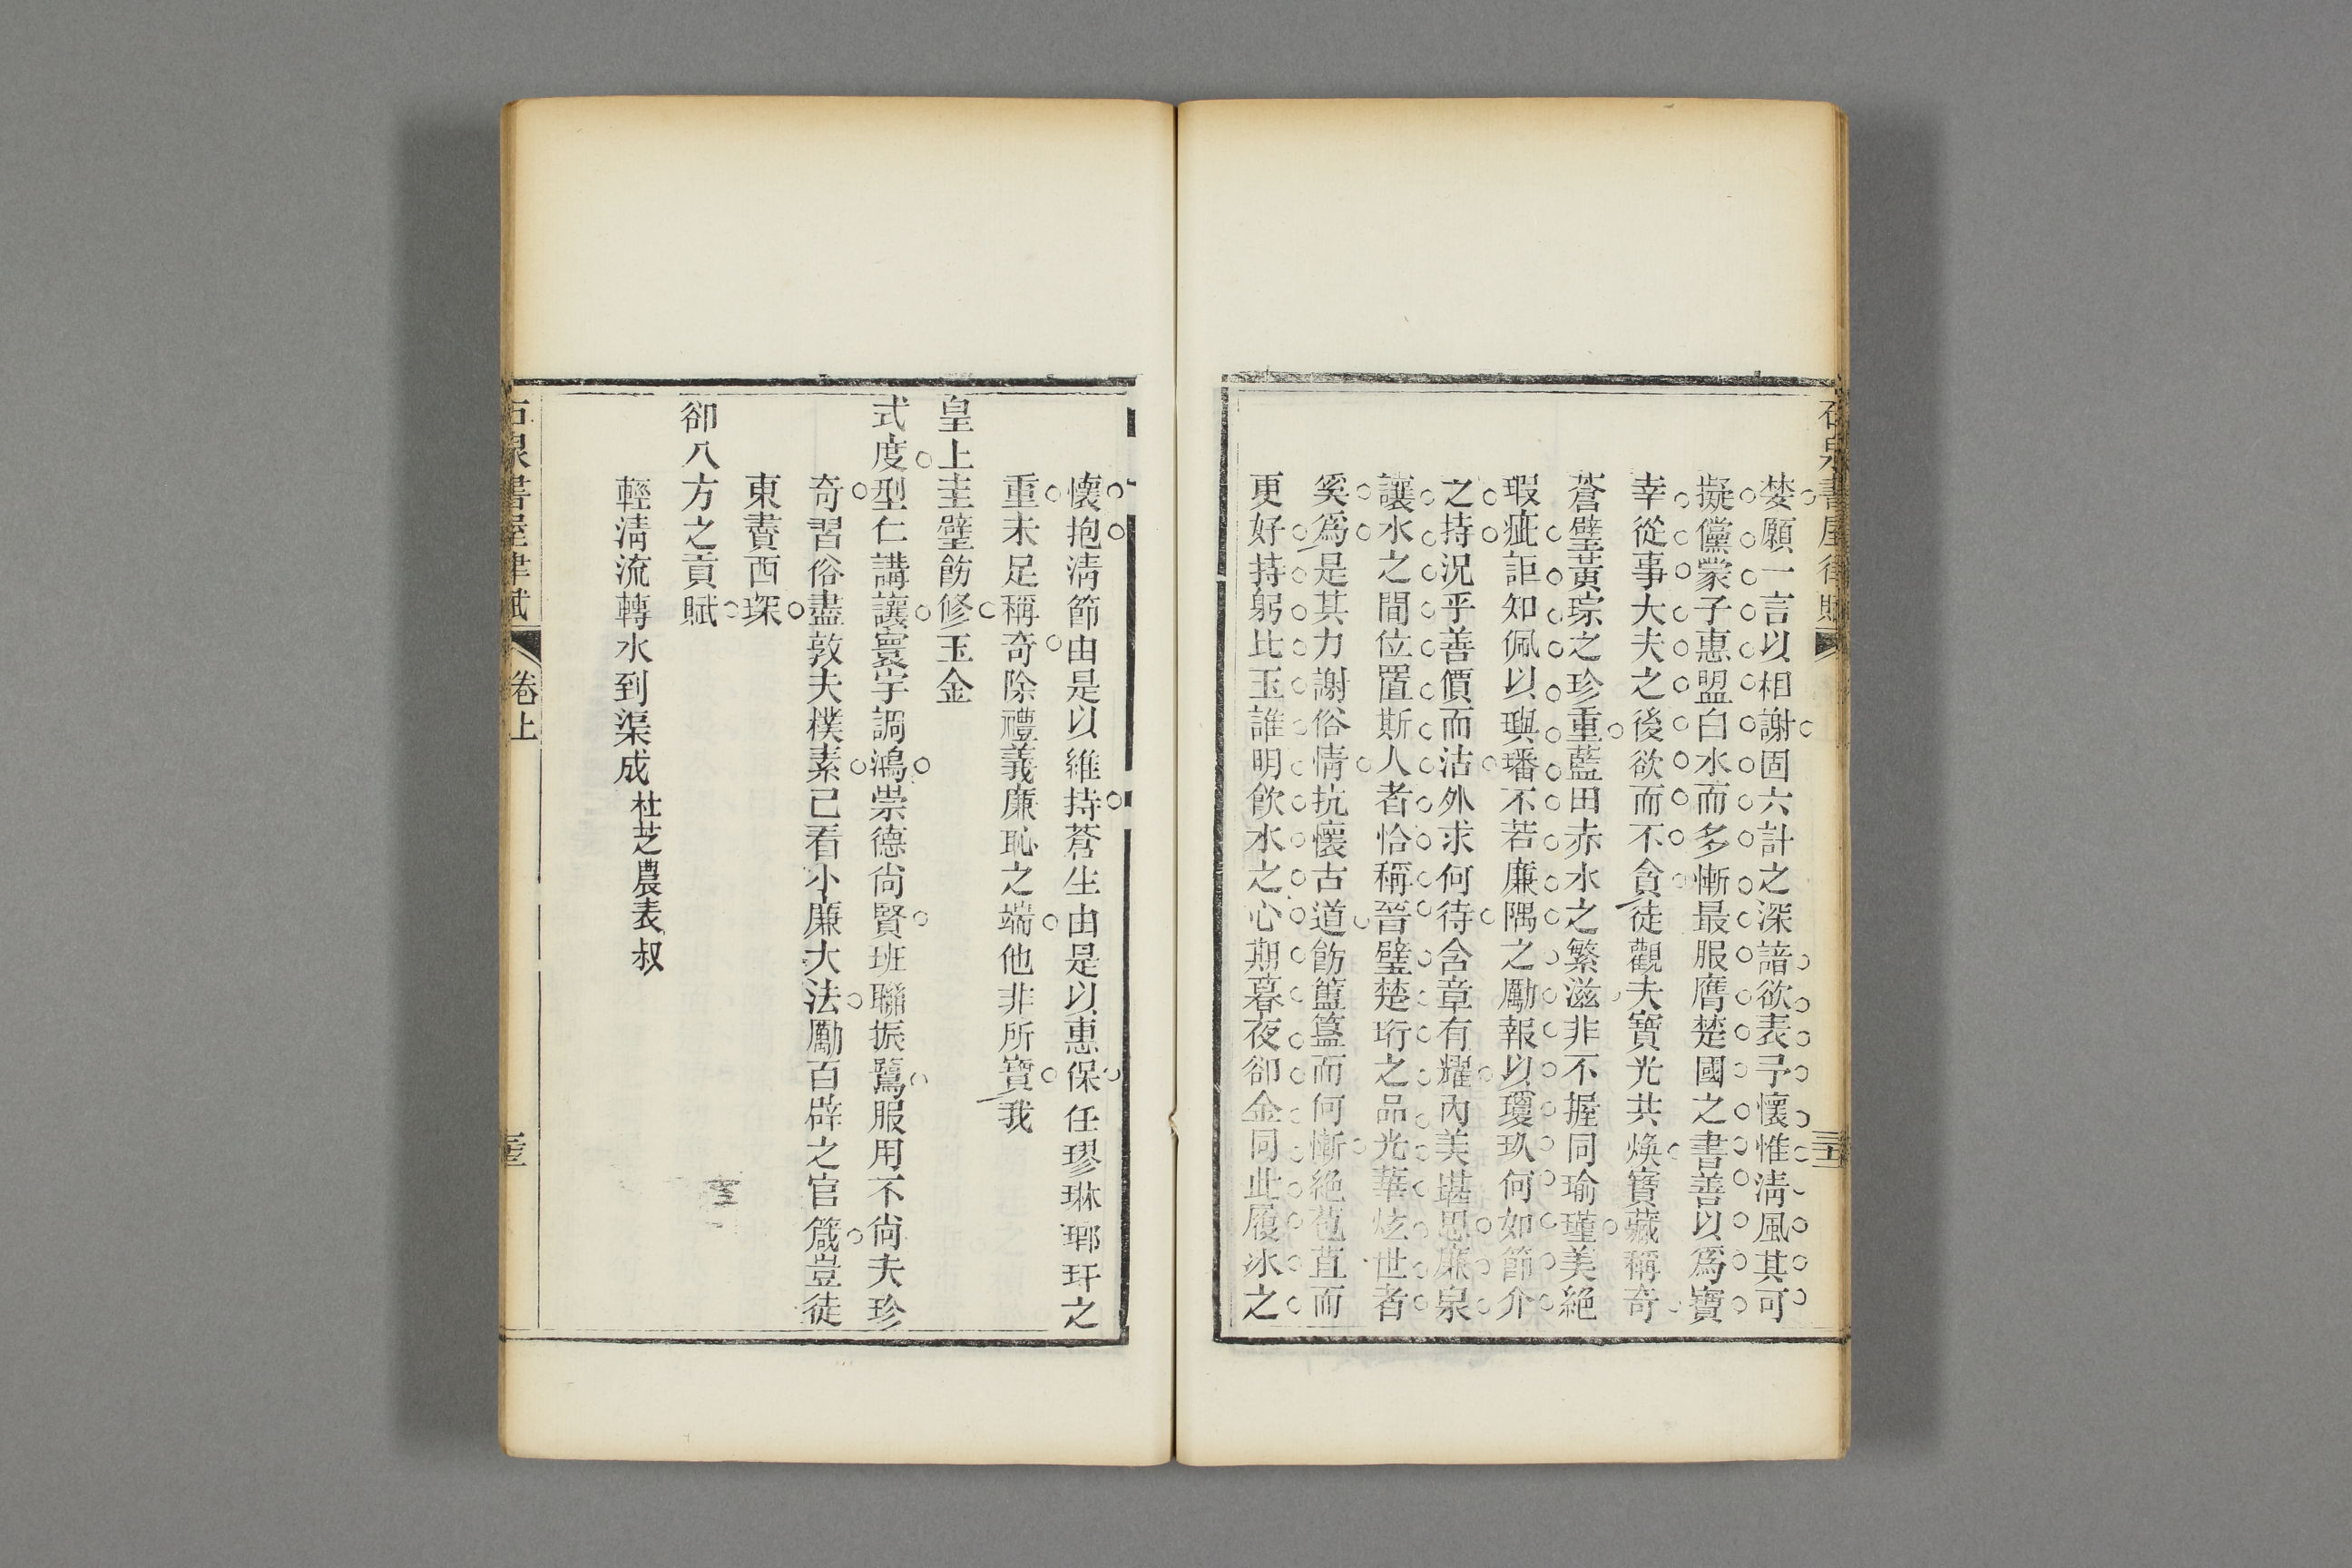 石泉書屋律賦
婪願一言以相謝固六計之深諳欲表予懷惟淸風其可
擬儻蒙子惠盟白水而多慚最服膺楚國之書善以爲寶
幸從事大夫之後欲而不貪徒觀夫寶光共煥寶藏稱奇
蒼璧黃琮之珍重藍田赤水之繁滋非不握同瑜瑾美絕
瑕疵詎知佩以璵璠不若廉隅之勵報以瓊玖何如節介
之持況乎善價而沽外求何待含章有耀內美堪思廉泉
讓水之間位置斯人者恰稱晉璧楚珩之品光華炫世者
奚爲是其力謝俗情抗懷古道飭簠簋而何慚絕苞苴而
更好持躬比玉誰明飮水之心期暮夜卻金同此履冰之
懷抱淸節由是以維持蒼生由是以惠保任璆琳瑯玕之
重未足稱奇除禮義廉恥之端他非所寶我
皇上圭璧飭修玉金
式度型仁講讓寰宇調鴻崇德尙賢班聯振鷺服用不尙夫珍
奇習俗盡敦夫樸素已看小廉大法勵百辟之官箴豈徒
東賮西琛
卻八方之貢賦
輕淸流轉水到渠成杜芝農表叔
石泉書屋律賦
卷上